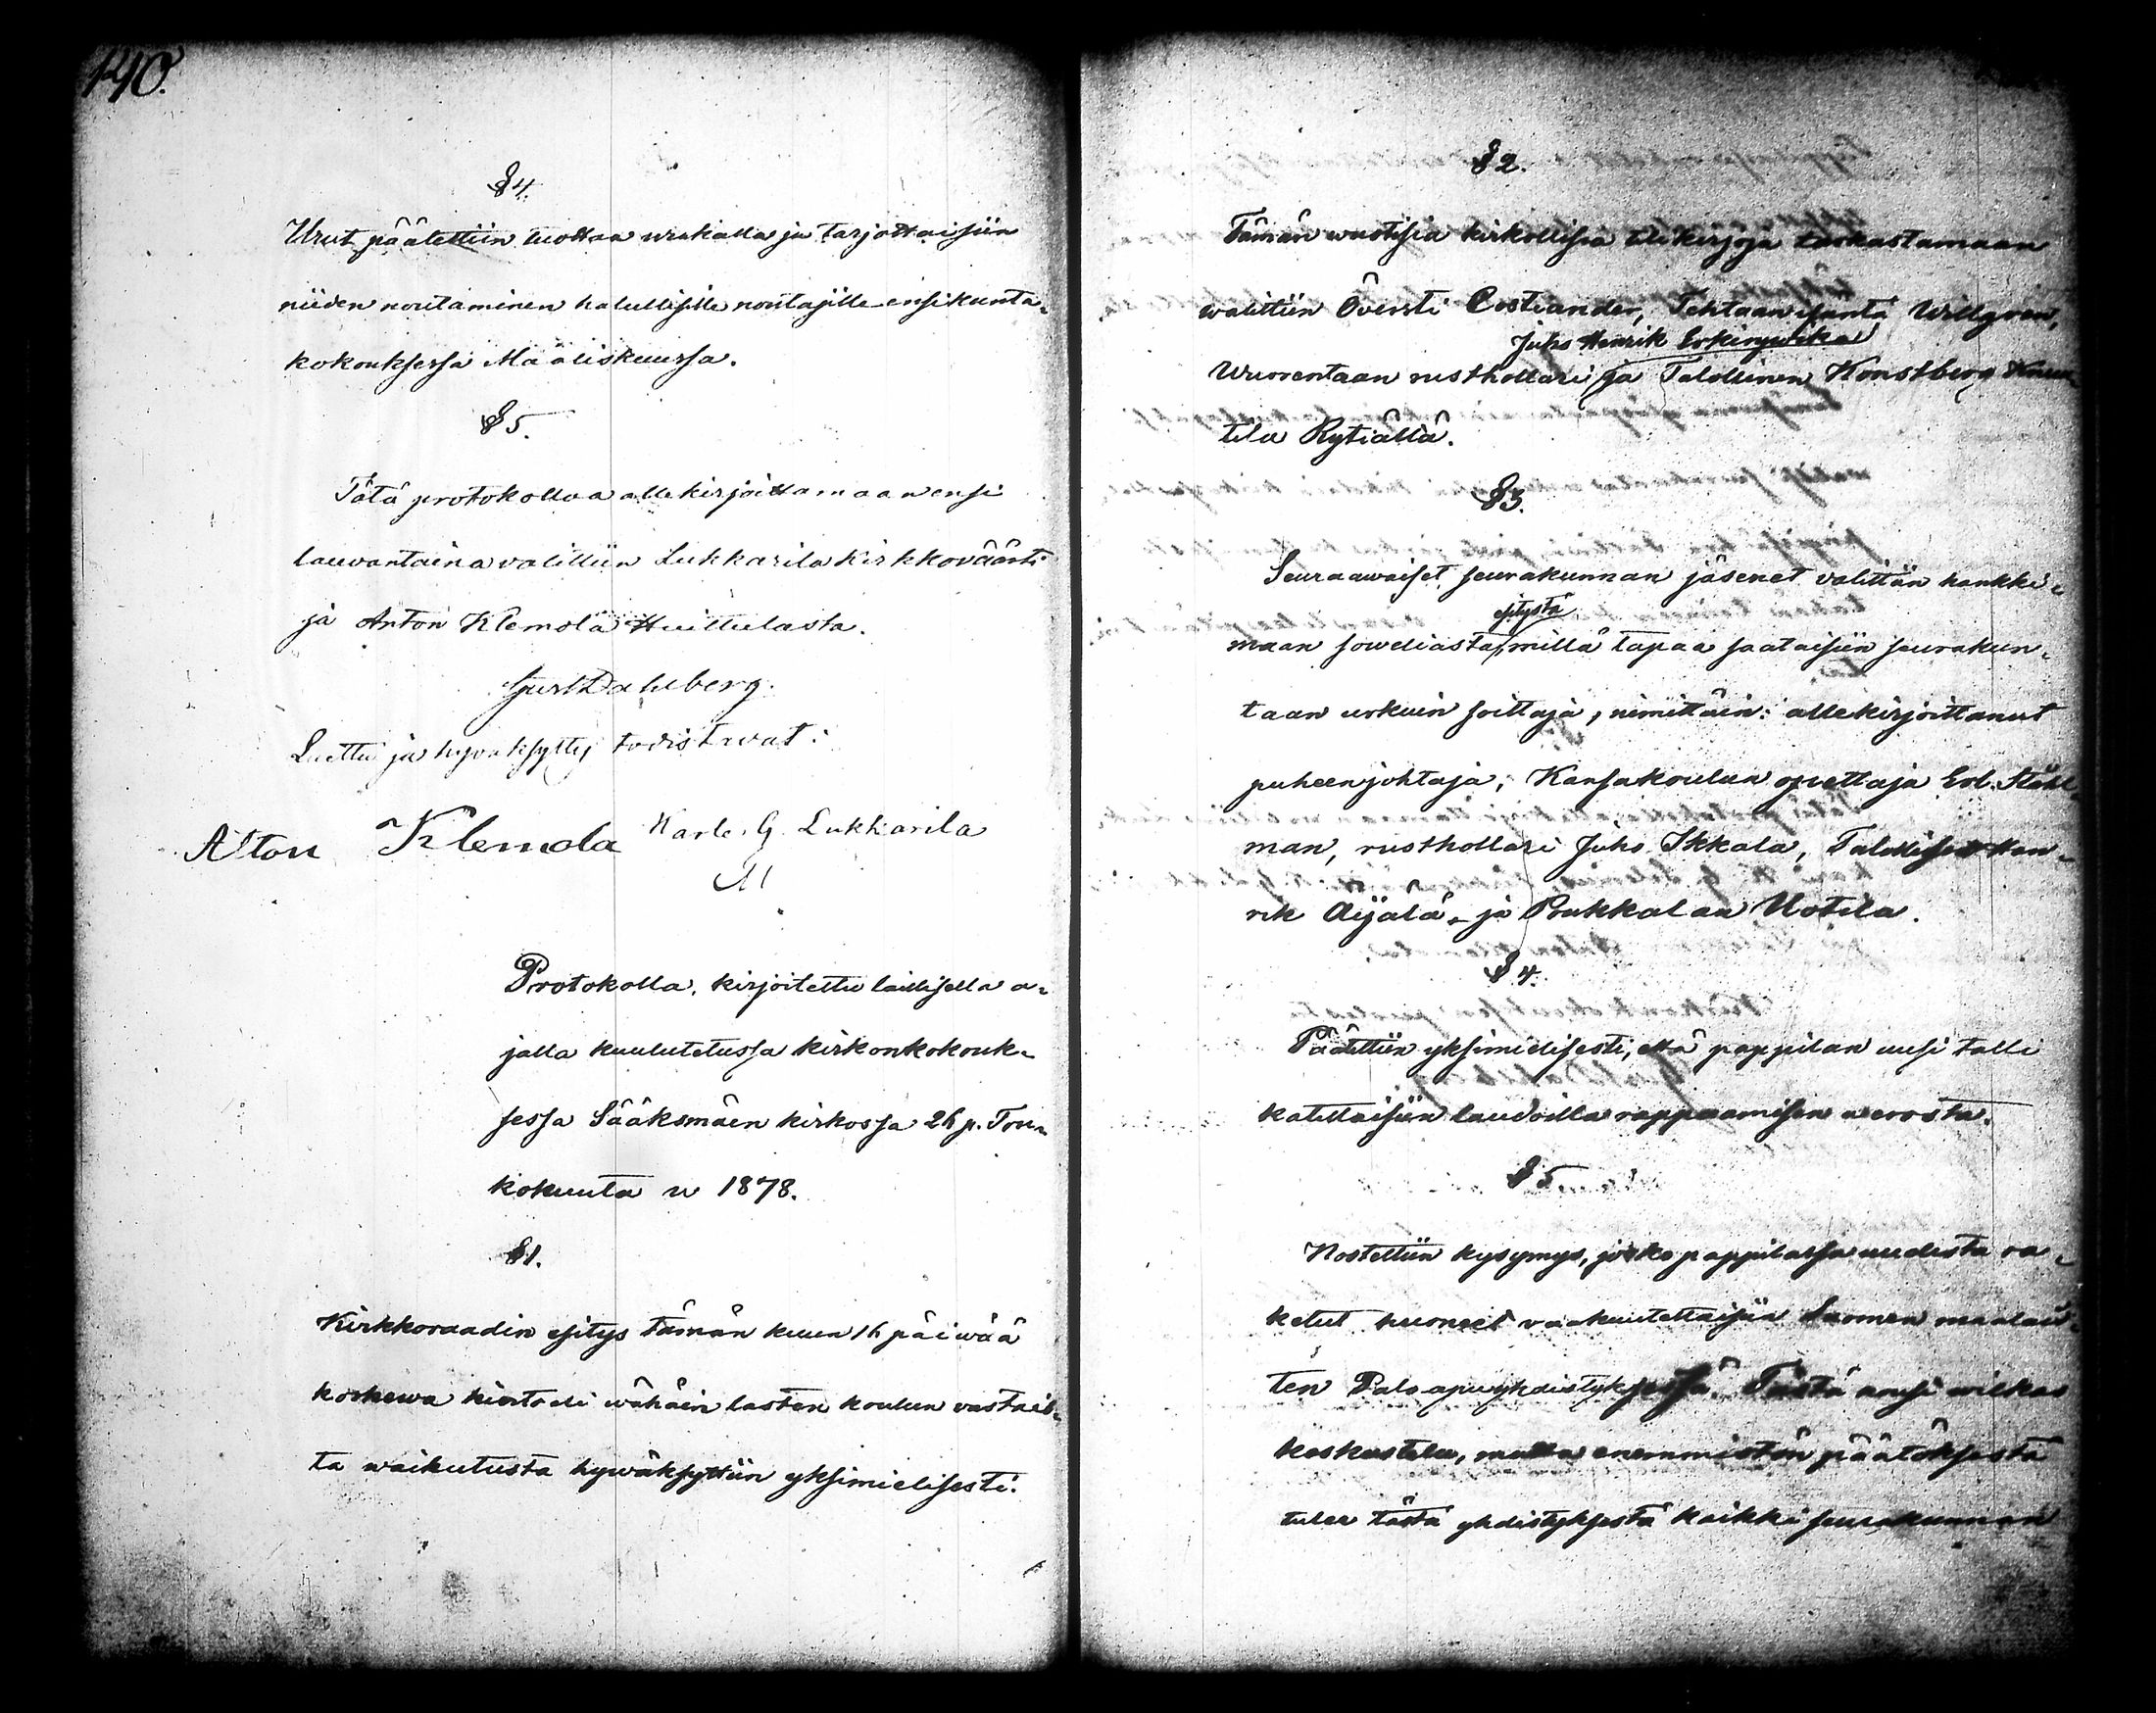 140.
§4.
Urut päätettiin tuottaa urakalla ja tarjottaisiin
niiden noutaminen halullisille noutajille ensi kunta-
kokouksessa Määliskuussa.
§5.
Tätä protokollaa allekirjoittamaan ensi
lauvantaina valittiin Lukkarila kirkkoväärti
ja Anton Klemola Huittulasta.
Gust Dahlberg.
Luettu ja hyväksytty todistavat:
Alton Klemola Karle. G. Lukkarila
Protokolla, kirjoitettu laillisella a-
jalla kuulutetussa kirkonkokouk-
sessa Sääksmäen kirkossa 26 p. Tou-
kokuuta w 1878.
§1.
Kirkkoraadin esitys tämän kuun 16 päiwää
koskewa kiertäli wähäin lasten koulun vastais-
ta waikutusta hywäksyttiin yksimielisesti.
§2.
Tämän wuotisia kirkollisia tilikirjoja tarkastamaan
walittiin Översti Costiander, Tehtaan isäntä Willgren,
Juho Henrik Erkinywika
Wuorentaan rusthollari ja Talollinen Konstberg
tila Rytiältä.
§3.
Seuraawaiset seurakunnan jäsenet valittiin hankki-
esitystä
maan soweliasta millä tapaa saataisiin seurakun-
taan urkuin soittaja, nimittäin: allekirjoittanut
puheenjohtaja, Kansakoulun opettaja Ed. Ståhl-
man, rusthollari Juho Ikkala, Talolliset Hen-
rik Äijälä, ja Poukkalan Uotila.
§4.
Päätettiin yksimielisesti, että pappilan uusi talli
katettaisiin laudoilla rappaamisen werosta.
§5
Nostettiin kysymys, josko pappilassa uudesta ra-
ketut huoneet vaakuutettaisiin Suomen maalais-
ten Palo apuyhdistyksessä. Tästä nousi wilkas
keskustelu, mutta enemmistön päätöksestä
tulee tästä yhdistyksestä kaikki seurakunnan